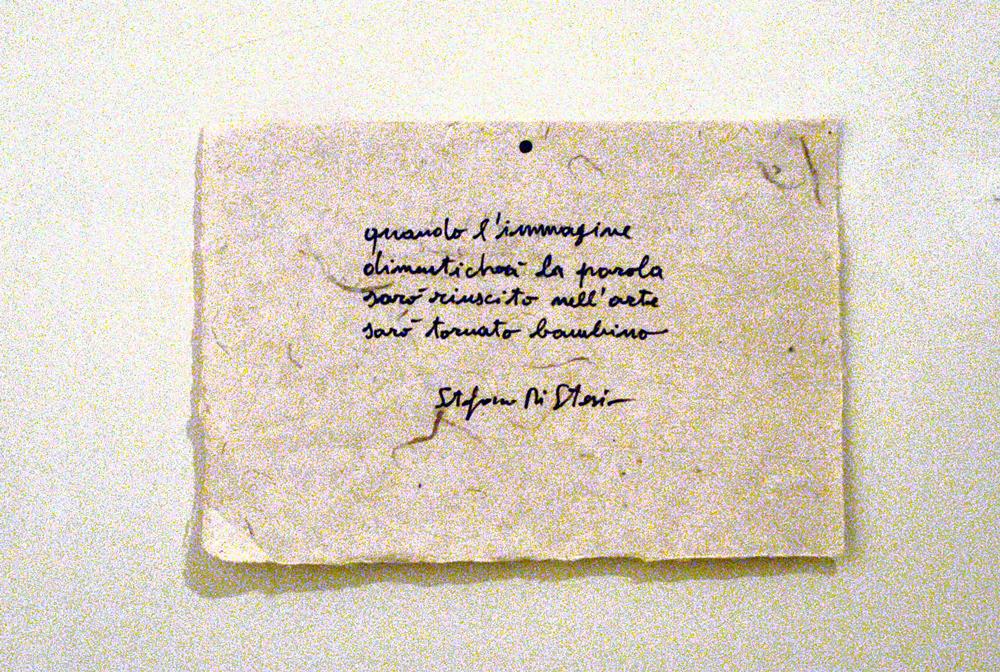 quando l'immagine
dimenticherà la parola
sarò riuscito nell'arte
sarò tornato bambino
Stefano Di Stasio